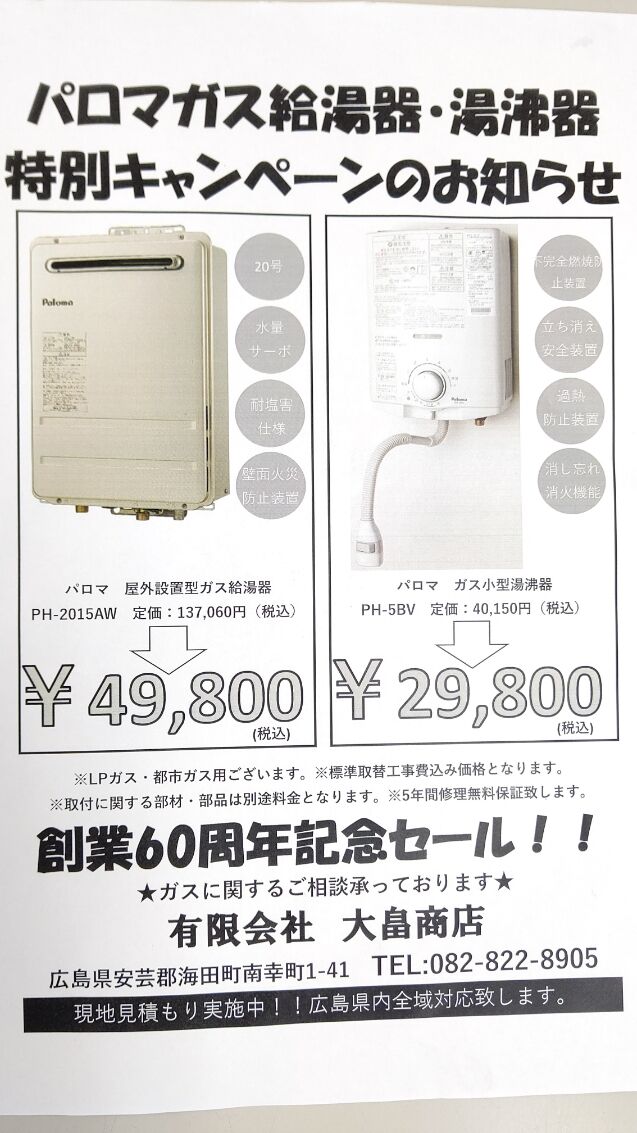 パロマガス給湯器・湯沸器
特別キャンペーンのお知らせ
20号
水量
サーボ
耐塩害
仕様
壁面火災
防止装置
Paloma
パロマ 屋外設置型ガス給湯器
PH-2015AW 定価：137,060円（税込）
￥49,800
(税込)
不完全燃焼防
止装置
立ち消え
安全装置
過熱
防止装置
消し忘れ
消火機能
Paloma
パロマ ガス小型湯沸器
PH-5BV 定価：40,150円（税込）
￥29,800
(税込)
※LPガス・都市ガス用ございます。※標準取替工事費込み価格となります。
※取付に関する部材・部品は別途料金となります。※5年間修理無料保証致します。
創業60周年記念セール！！
★ガスに関するご相談承っております★
有限会社 大畠商店
広島県安芸郡海田町南幸町1-41 TEL:082-822-8905
現地見積もり実施中！！広島県内全域対応致します。